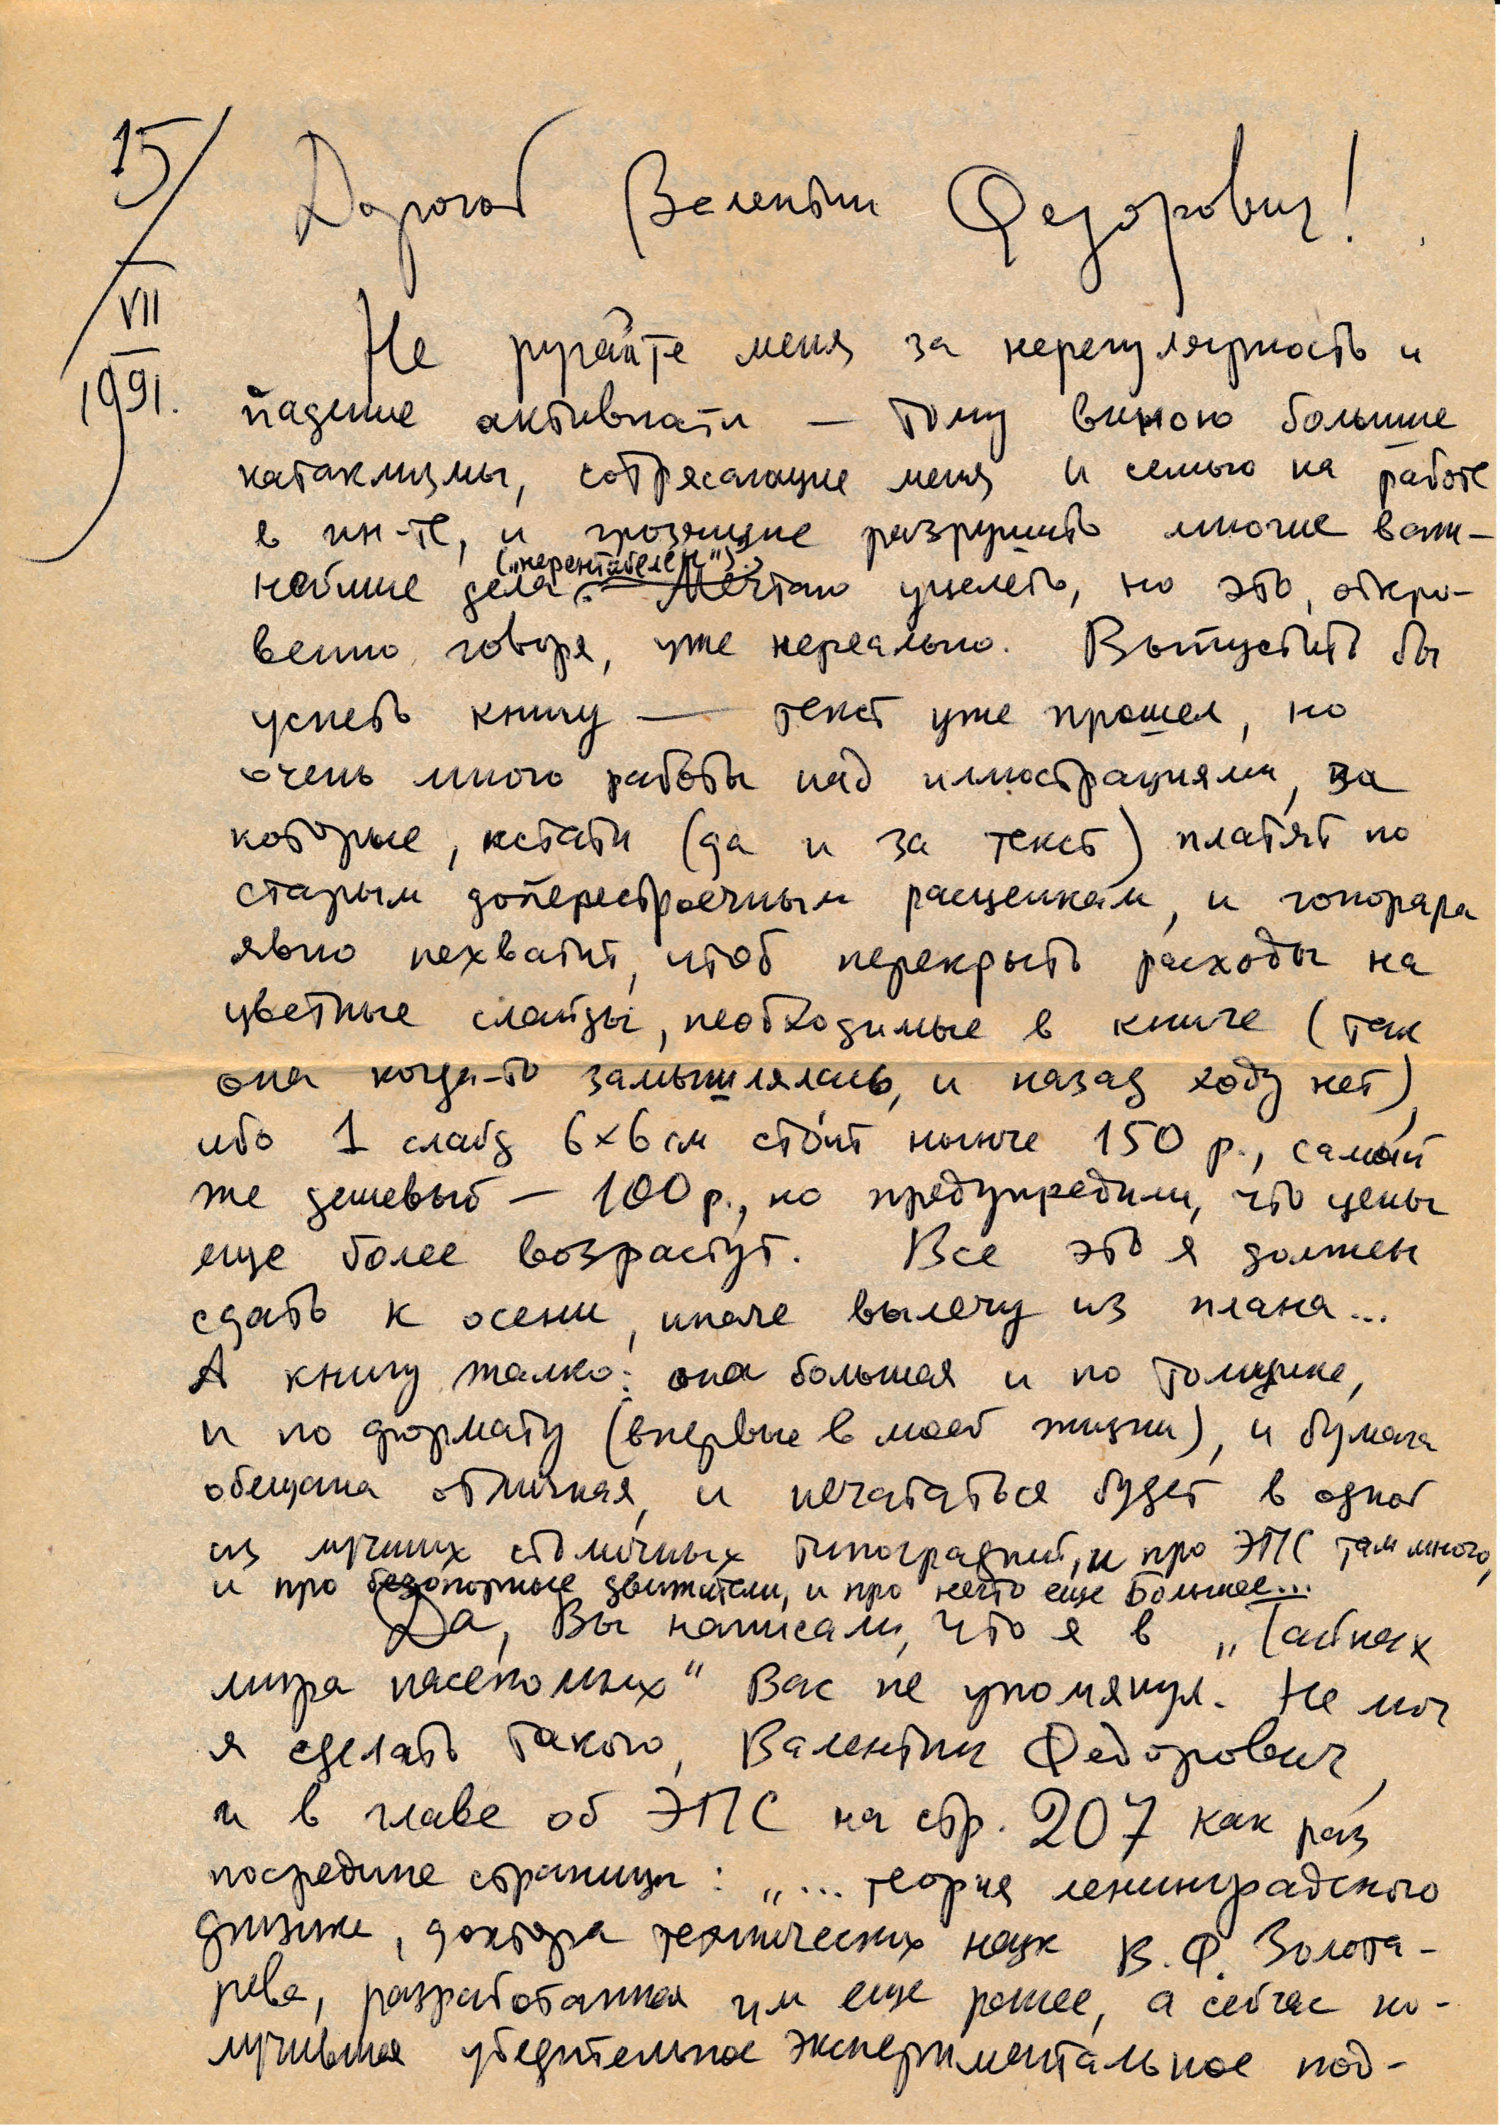 15/VII
1991.
Дорогой Валентин Федорович!
Не ругайте меня за нерегулярность и
падение активности — тому виною большие
катаклизмы, сотрясающие меня и семью на работе
в ин-те, и грозящие разрушить многие важ-
("нерентабелен").
нейшие дела. Мечтаю уцелеть, но это, откро-
венно говоря, уже нереально. Выпустить бы
успеть книгу — текст уже прошел, но
очень много работы над иллюстрациями, за
которые, кстати (да и за текст) платят по
старым доперестроечным расценкам, и гонорара
явно нехватит, чтоб перекрыть расходы на
цветные слайды, необходимые в книге (так
она когда-то замышлялась, и назад ходу нет),
ибо 1 слайд 6×6 см стóит нынче 150 р., самый
же дешевый — 100 р., но предупредили, что цены
еще более возрастут. Все это я должен
сдать к осени, иначе вылечу из плана...
А книгу жалко: она большая и по толщине,
и по формату (впервые в моей жизни), и бумага
обещана отличная, и печататься будет в одной
из лучших столичных типографий, и про ЭПС там много,
и про безопорные движители, и про нечто еще Большее...
Да, Вы написали, что я в „Тайнах
мира насекомых" Вас не упомянул. Не мог
я сделать такого, Валентин Федорович,
и в главе об ЭПС на стр. 207 как раз
посредине страницы: „... теория ленинградского
физика, доктора технических наук В. Ф. Золота-
рева, разработанная им еще ранее, а сейчас по-
лучившая убедительное экспериментальное под-